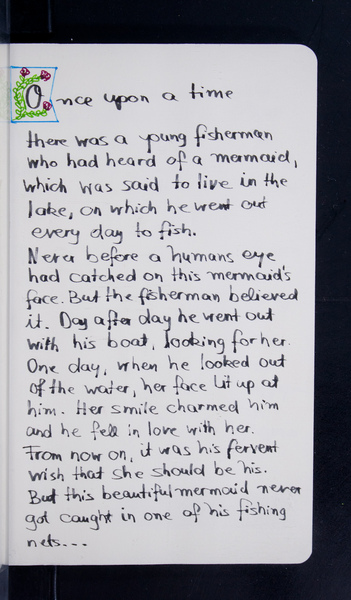 Once upon a time
there was a young fisherman
who had heard of a mermaid,
which was said to live in the
lake, on which he went out
every day to fish.
Never before a humans eye
had catched on this mermaid's
face. But the fisherman believed
it. Day after day he went out
with his boat, looking for her.
One day, when he looked out
of the water, her face lit up at
him. Her smile charmed him
and he fell in love with her.
From now on, it was his fervent
wish that she should be his.
But this beautiful mermaid never
got caught in one of his fishing
nets...